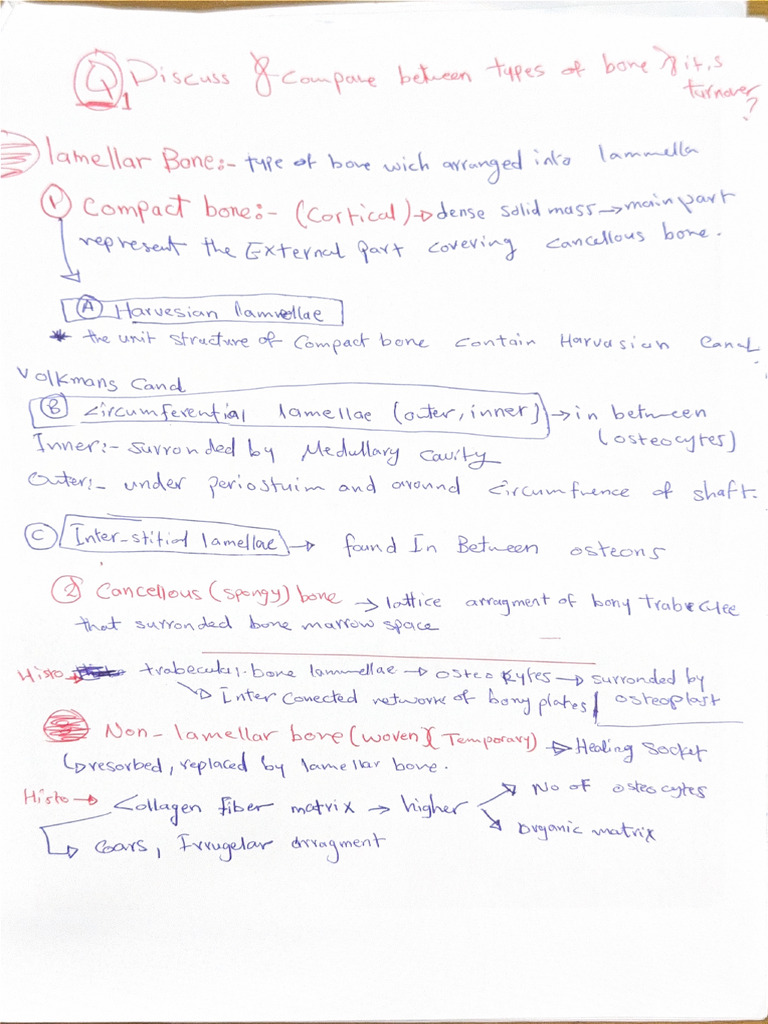 Q1 Discuss & compare between types of bone & it,s
turnover?
lamellar Bone:- type of bone wich arranged into lammella
1) Compact bone:- (Cortical) → dense solid mass → main part
represent the External part covering cancellous bone.
A Harvesian lamellae
* the unit structure of compact bone contain Harvasian Canal
Volkmans Canal
B Circumferential lamellae (outer, inner) → in between
(osteocytes)
Inner:- surronded by Medullary cavity
Outer:- under periostuim and around circumfrence of shaft.
C Inter-stitial lamellae → found In Between osteons
2 Cancellous (spongy) bone → lattice arragment of bony trabeculee
that surronded bone marrow space
Histo → trabecular bone lammellae → osteo cytes → surronded by
→ Inter conected network of bony plates / osteoplast
Non-lamellar bone (woven) (Temporary) → Healing socket
↳ resorbed, replaced by lamellar bone.
Histo → Collagen fiber matrix → higher → No of osteocytes
→ organic matrix
↳ Coars, Irrugelar arragment